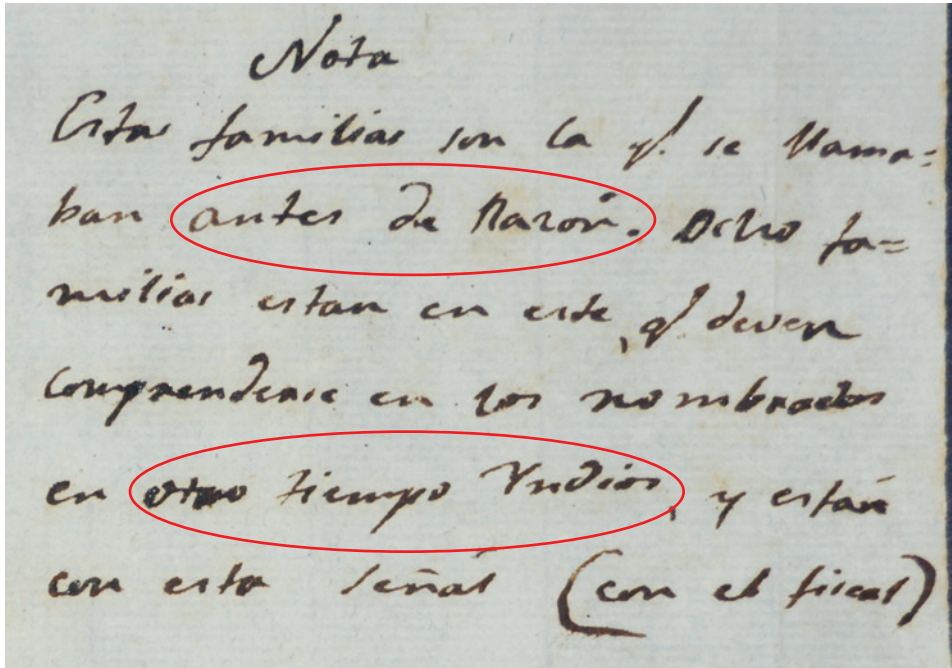 Nota
Estas familias son la q.ᵉ se llama=
ban antes de Razón. Ocho fa=
milias estan en este, q.ᵉ deven
comprenderse en los nombrados
en otro tiempo Yndios, y están
con esta señal (con el fiscal)